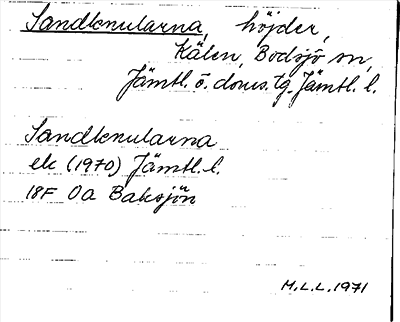 Sandknularna, höjder,
Kälen, Bodsjö sn,
Jämtl. ö. doms. tg. Jämtl. l.
Sandknularna
ek (1970) Jämtl. l.
18F 0a Baksjön
M.L.L. 1971